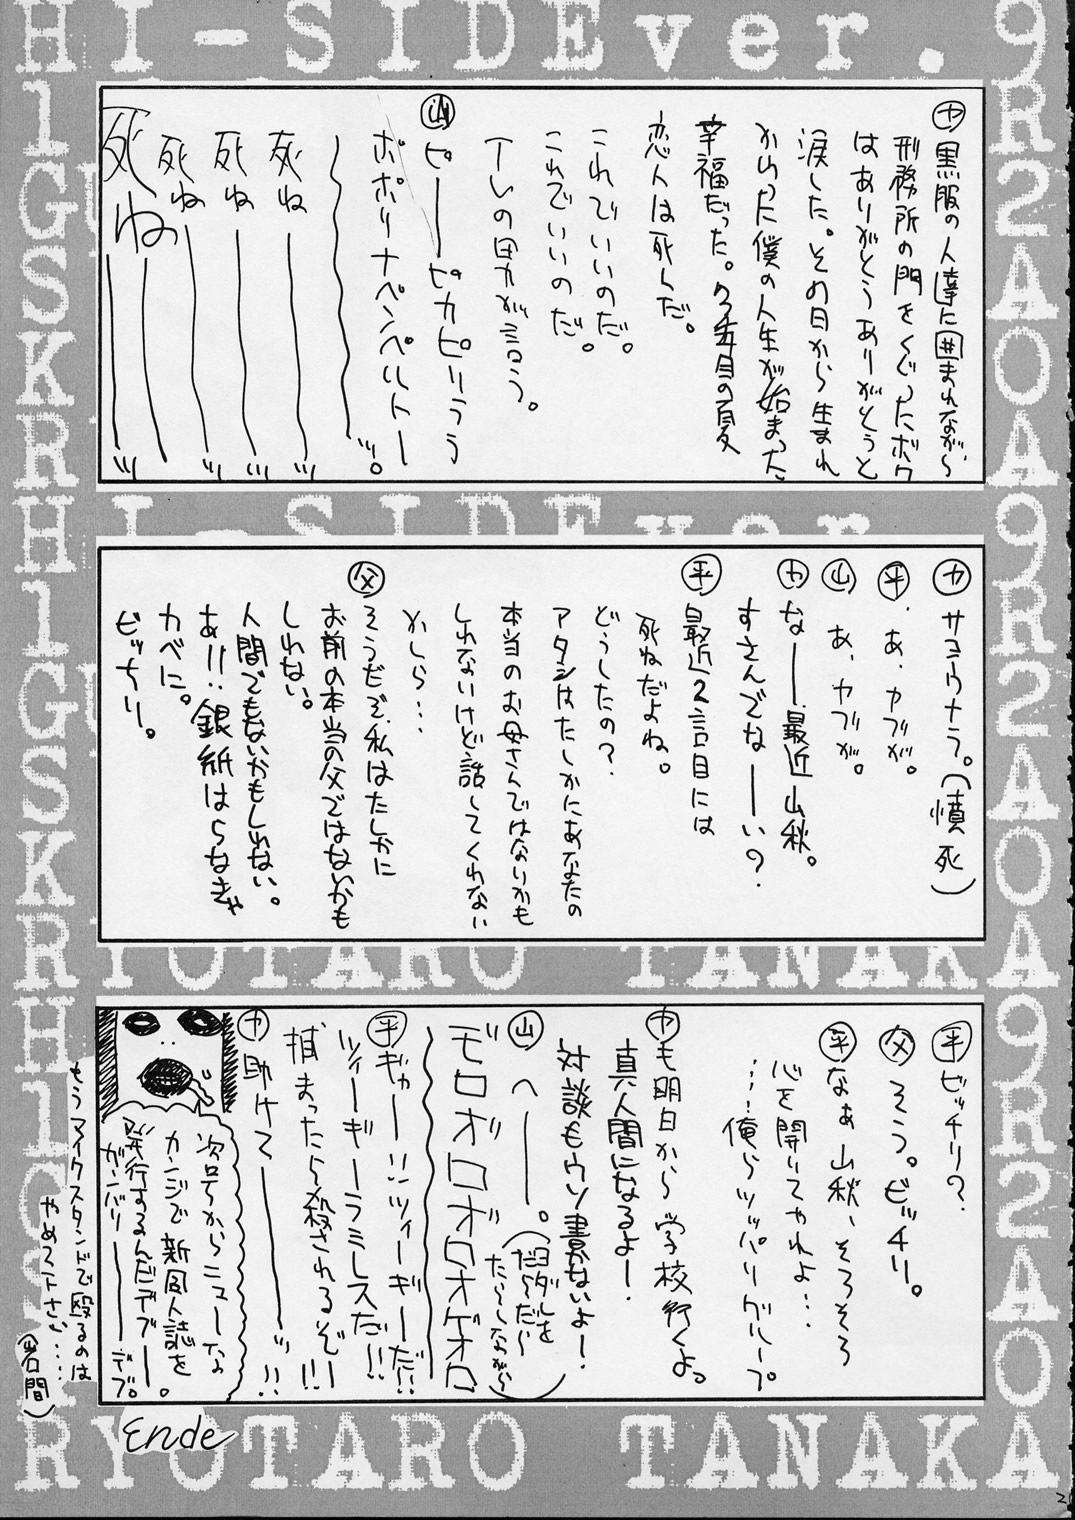 HI-SIDEver.
㋳黒服の人達に囲まれながら、
刑務所の門をくぐったボク
はありがとうありがとうと
涙した。その日から生まれ
かわった僕の人生が始まった
幸福だった。
年目の夏
恋人は死んだ。
これでいいのだ。
これでいいのだ。
の男が言う。
㊁ピーーピカピリうう
ポポリナペンペルトー
死ね
死ね
死ね
死ね
HI-SIDEver.
㋳サヨウナラ。(憤死)
㊥あ、ヤブが。
㊤あ、ヤブが。
㋳なー最近山秋。
すさんでなーい?
㊥最近2言目には
死ねだよね。
どうしたの?
アタシはたしかにあなたの
本当のお母さんではないかも
しれないけど話してくれない
かしら…
父そうだぞ、私はたしかに
お前の本当の父ではないかも
しれない。
人間でもないかもしれない。
あ!!銀紙はらなきゃ
カベに。
ビッチリ。
RYOTARO TANAKA
平ビッチリ?
父そう。ビッチリ。
平なあ山秋、そろそろ
心を開いてやれよ…
……俺らツッパリグループ。
ヤも明日から学校行くよ。
真人間になるよー!
対談もウソ書かないよー!
山へーー。(ヨダレを
だらだら
たらしながら)
ボロオロオロオゲオロ
平ギャー!!ツィーギーだ!!
ツィーギーラミレスだ!!
捕まったら殺されるぞー!!!
ヤ助けてーーッ!!
次号からニューな
カンジで新同人誌を
発行するんだデブー。
ガンバリーーデブ。
もうマイクスタンドで殴るのは
やめて下さい…
(岩間)
Ende
RYOTARO TANAKA